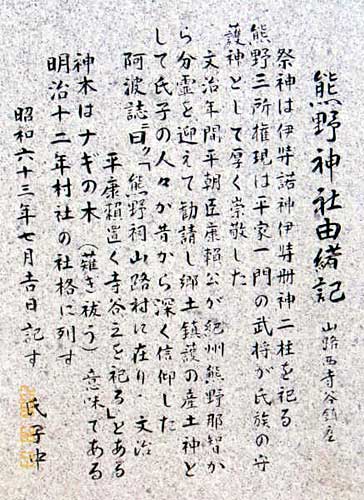 熊野神社由緒記
山路西寺谷鎮座
祭神は伊弉諾神伊弉冊神二柱を祀る
熊野三所権現は平家一門の武将が氏族の守
護神として厚く崇敬した
文治年間平朝臣康頼公が紀州熊野那智か
ら分霊を迎えて勧請し郷土鎮護の産土神と
して氏子の人々が昔から深く信仰した
阿波誌ニ曰ク「熊野祠山路村に在り・文治
平康頼置く寺谷之を祀る」とある
神木はナギの木(薙き祓う)意味である
明治十二年村社の社格に列す
昭和六十三年七月吉日記す 氏子中